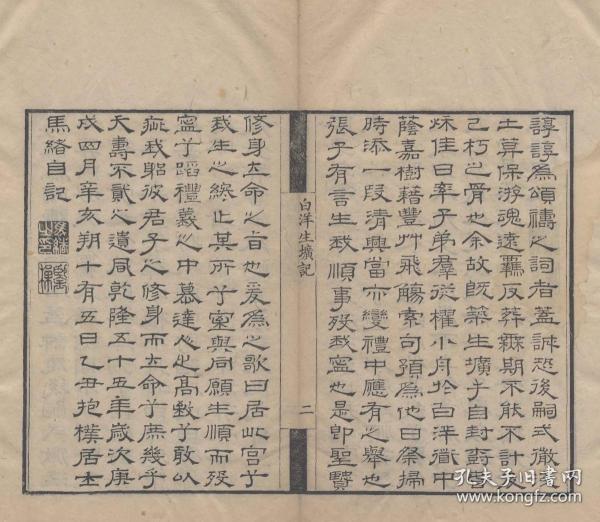 諄諄為頌禱之詞者蓋誠恐後嗣式微
土算保游魂遠羈反葬無期不能不計
己朽之骨也余故既築生壙于自封
秌佳日率子弟羣從櫂小舟於白洋嶽中
蔭嘉樹藉豐艸飛觴索句預為他日祭掃
時添一段清興當亦變禮中應有之舉也
張子有言生我順事歿我寧也是即聖賢
白洋生壙記
二
修身立命之旨也爰為之歌曰居此宮兮
我生之終止其所兮案與同願生順而歿
寧兮蹈禮義之中慕達之高致兮敢以
疵我躬彼君子之修身而立命兮庶幾乎
夭壽不貳之遺風乾隆五十五年歲次庚
戌四月辛亥朔十有五日乙丑抱樸居士
馬緒自記
孔夫子旧书网
www.kongfz.com